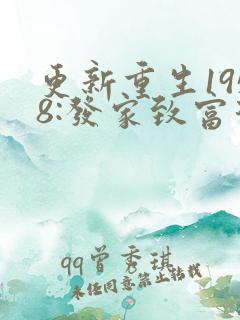 更新重生19
8:發家致富
qq曾秀琪
未经同意禁止转载